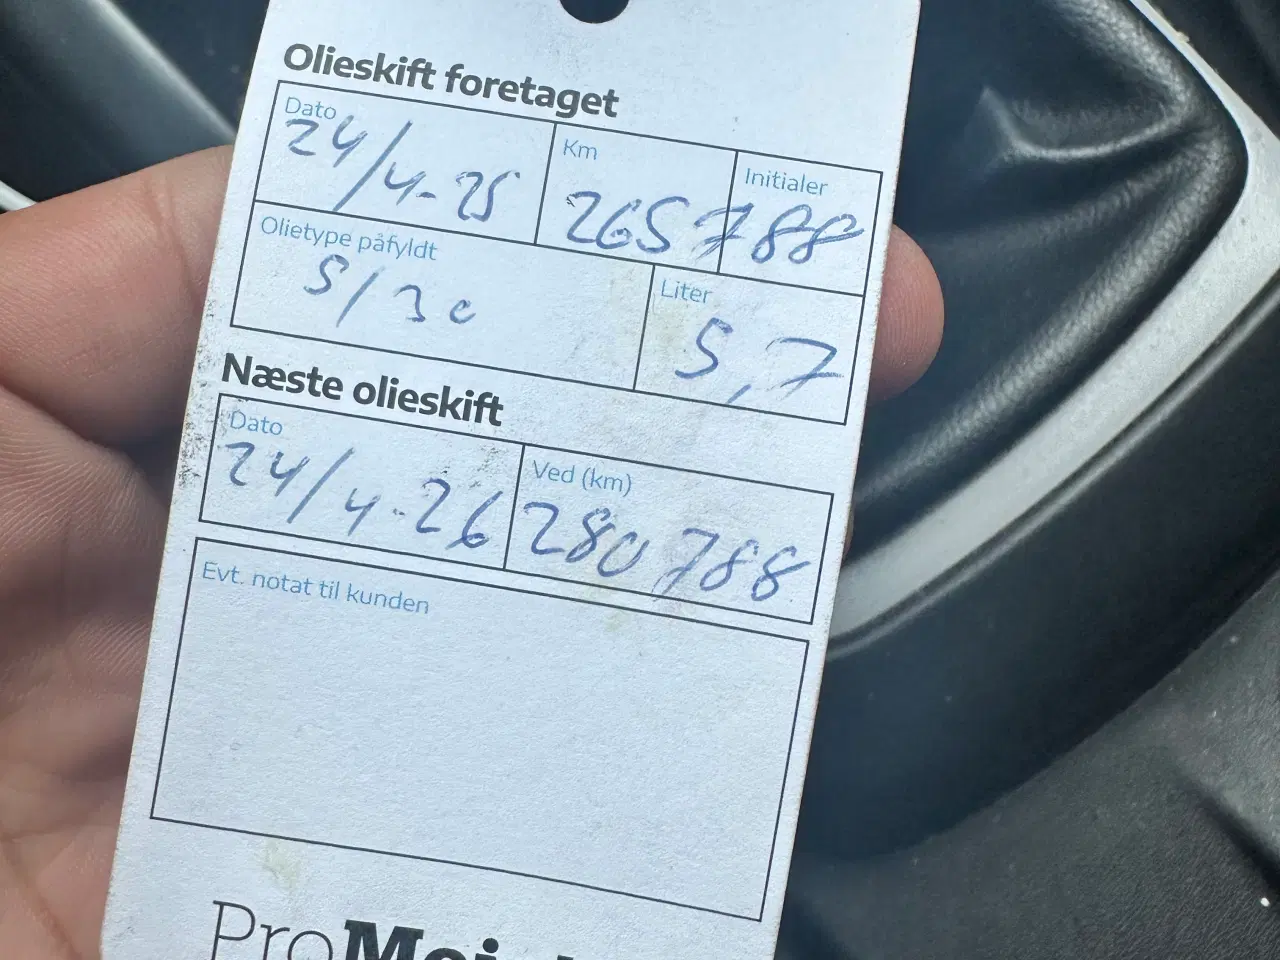 Olieskift foretaget
Dato
Km
Initialer
24/4-25
265788
Olietype påfyldt
Liter
5/30
5,7
Næste olieskift
Dato
Ved (km)
24/4-26
280788
Evt. notat til kunden
Pro